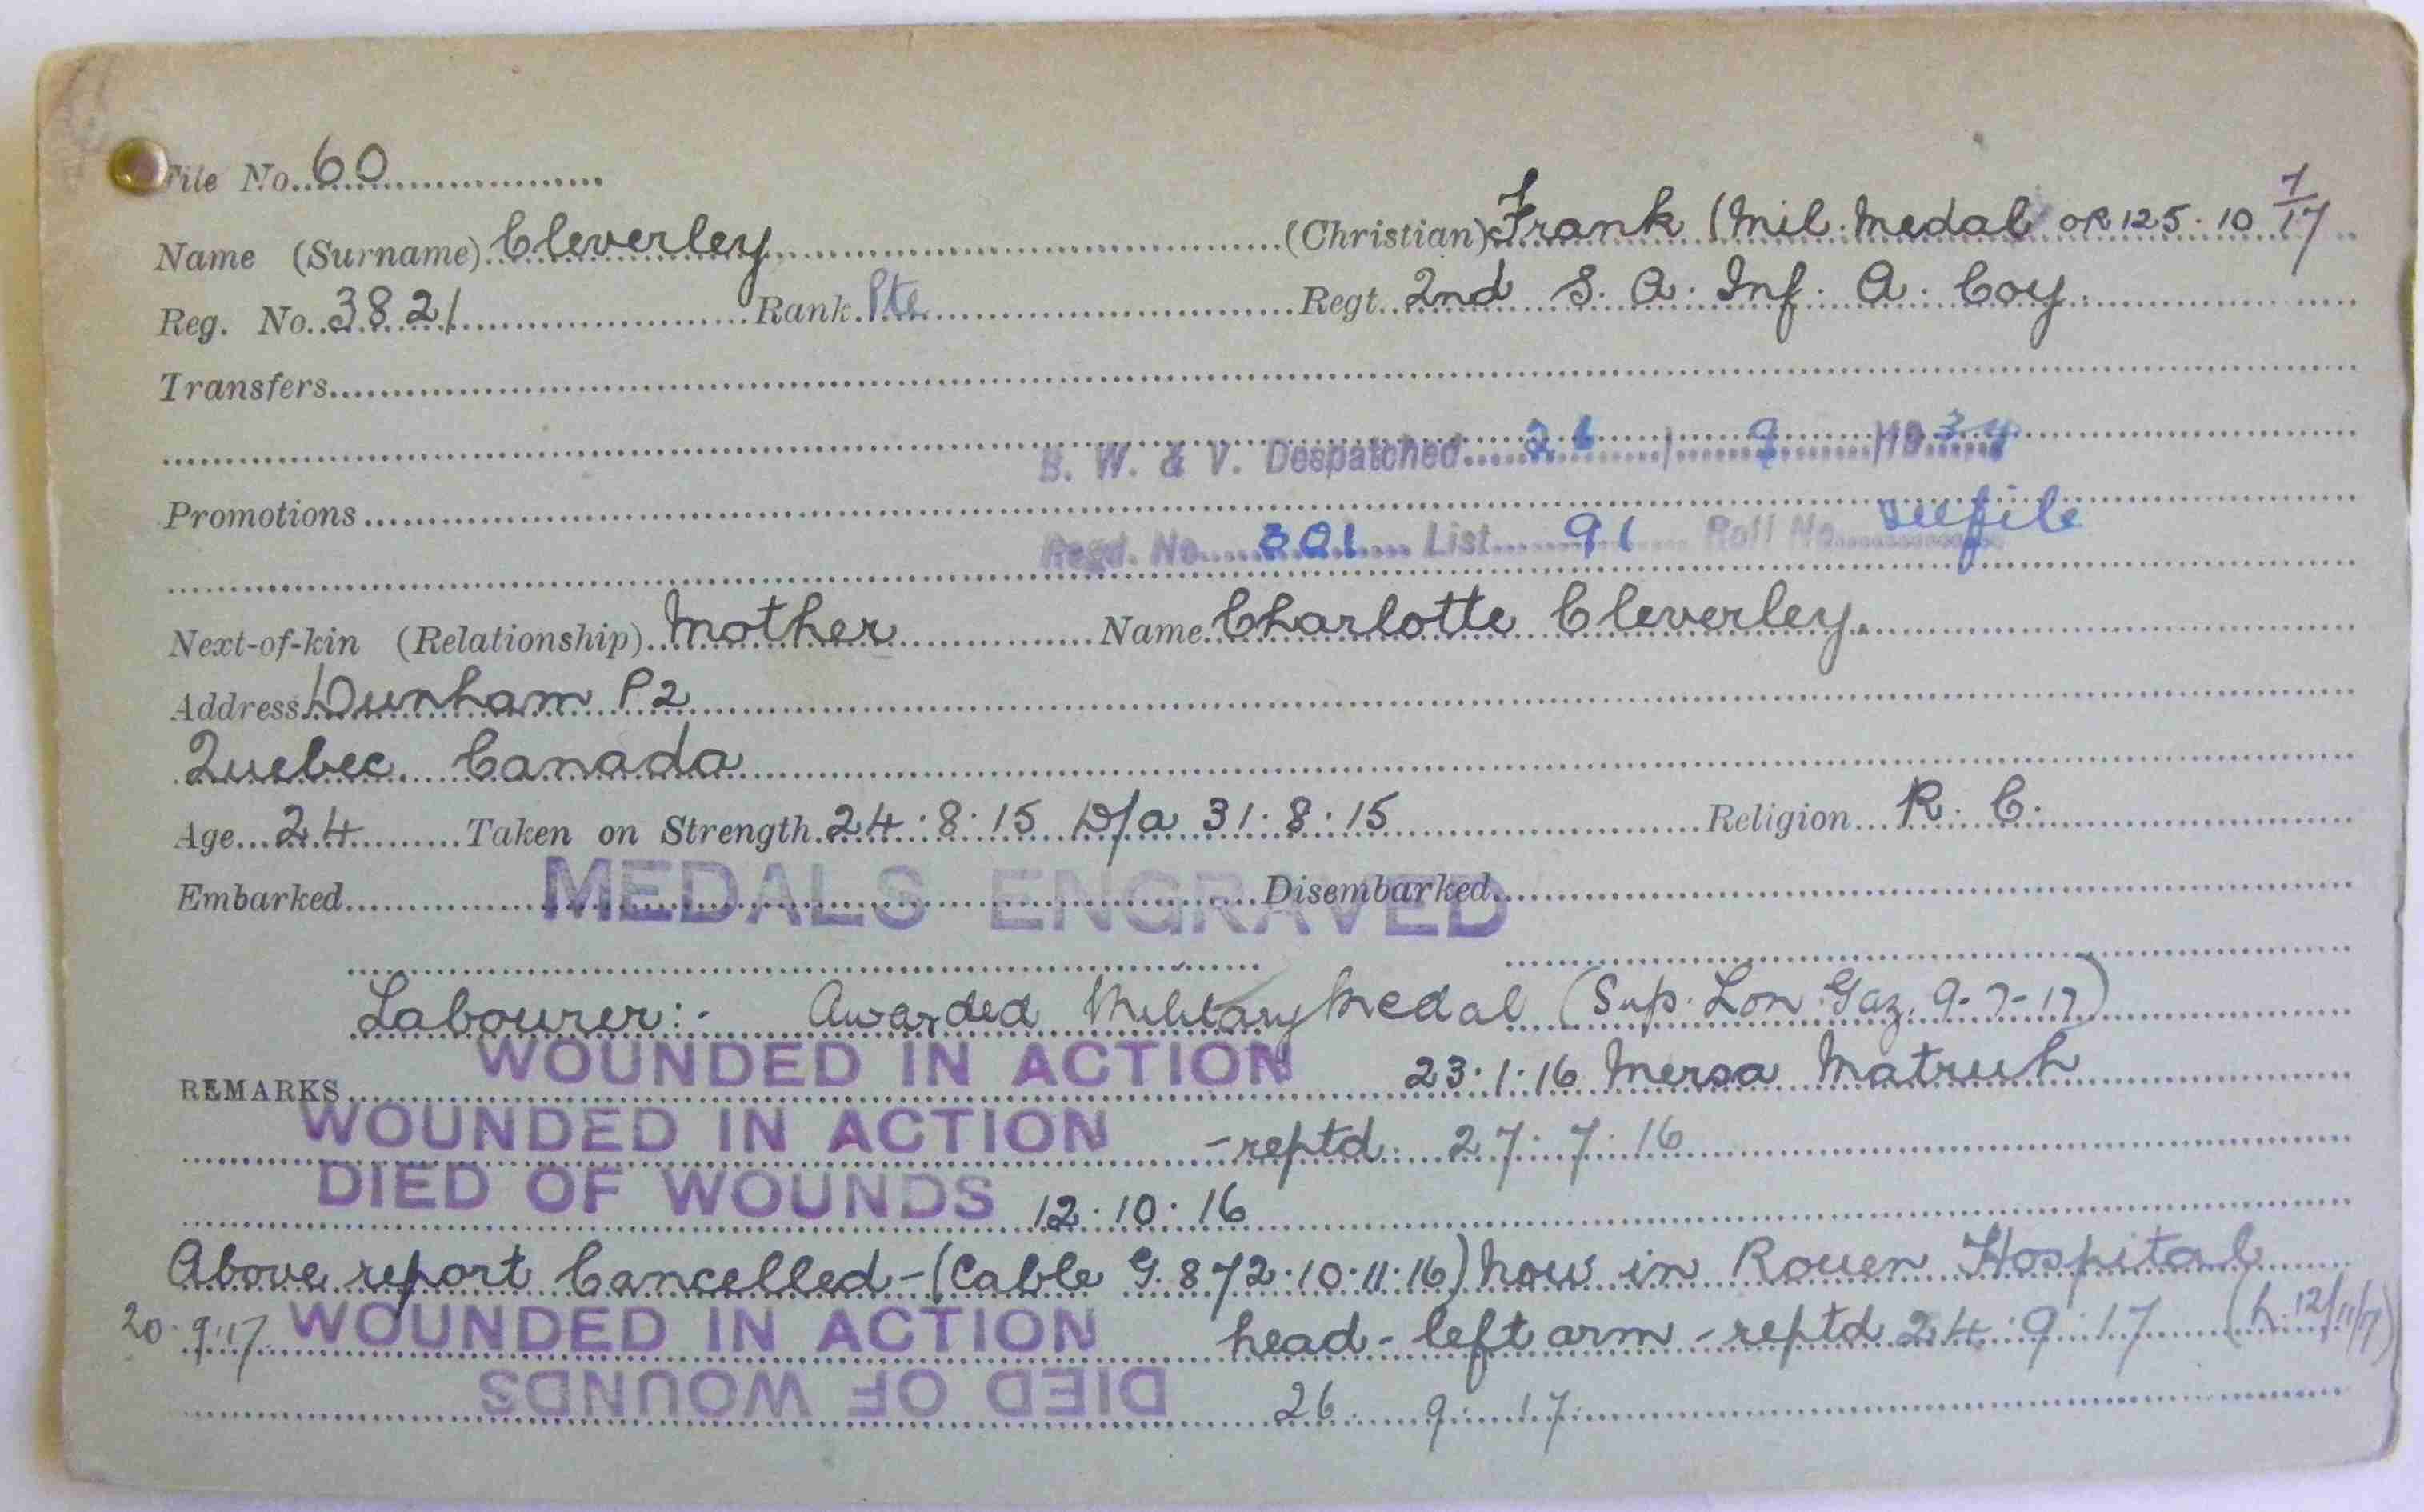 File No. 60
Name (Surname) Cleverley (Christian) Frank (Mil. Medal OR 125. 10 7/17
Reg. No. 3821 Rank Pte Regt. 2nd S. A. Inf. A. Coy.
Transfers
B. W. & V. Despatched 26 / 9 / 1934
Promotions
Regd. No. 301 List 91 Roll No. see file
Next-of-kin (Relationship) Mother Name Charlotte Cleverley.
Address Dunham P2
Quebec. Canada
Age 24 Taken on Strength 24:8:15 D/a 31:8:15 Religion R. C.
MEDALS ENGRAVED
Embarked Disembarked
Labourer:- Awarded Military Medal (Sup. Lon. Gaz. 9-7-17)
REMARKS WOUNDED IN ACTION 23.1.16 Mersa Matruh
WOUNDED IN ACTION - reptd. 27:7:16
DIED OF WOUNDS 12:10:16
Above report Cancelled - (Cable G.872.10.11.16) now in Rouen Hospital
20.9.17 WOUNDED IN ACTION head - left arm - reptd 24:9:17 (h.12/11/17)
DIED OF WOUNDS 26 9 17